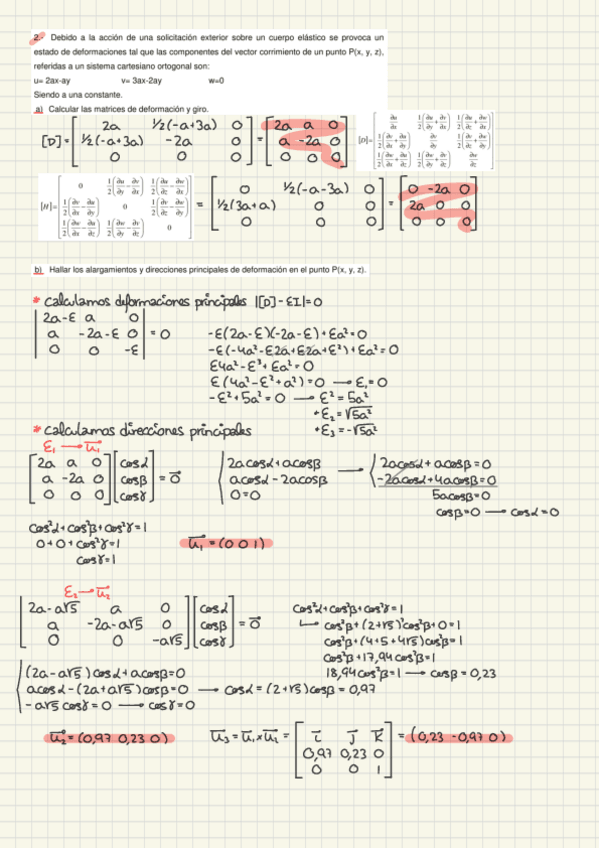 2.- Debido a la acción de una solicitación exterior sobre un cuerpo elástico se provoca un
estado de deformaciones tal que las componentes del vector corrimiento de un punto P(x, y, z),
referidas a un sistema cartesiano ortogonal son:
u= 2ax-ay v= 3ax-2ay w=0
Siendo a una constante.
a) Calcular las matrices de deformación y giro.
[D] = [2a 1/2(-a+3a) 0; 1/2(-a+3a) -2a 0; 0 0 0] = [2a a 0; a -2a 0; 0 0 0]
[D] = [∂u/∂x 1/2(∂u/∂y+∂v/∂x) 1/2(∂u/∂z+∂w/∂x); 1/2(∂v/∂x+∂u/∂y) ∂v/∂y 1/2(∂v/∂z+∂w/∂y); 1/2(∂w/∂x+∂u/∂z) 1/2(∂w/∂y+∂v/∂z) ∂w/∂z]
[H] = [0 1/2(∂u/∂y-∂v/∂x) 1/2(∂u/∂z-∂w/∂x); 1/2(∂v/∂x-∂u/∂y) 0 1/2(∂v/∂z-∂w/∂y); 1/2(∂w/∂x-∂u/∂z) 1/2(∂w/∂y-∂v/∂z) 0] = [0 1/2(-a-3a) 0; 1/2(3a+a) 0 0; 0 0 0] = [0 -2a 0; 2a 0 0; 0 0 0]
b) Hallar los alargamientos y direcciones principales de deformación en el punto P(x, y, z).
* Calculamos deformaciones principales |[D]-εI|=0
|2a-ε a 0; a -2a-ε 0; 0 0 -ε| = 0
-ε(2a-ε)(-2a-ε)+εa²=0
-ε(-4a²-ε2a+ε2a+ε²)+εa²=0
ε4a²-ε³+εa²=0
ε(4a²-ε²+a²)=0 → ε₁=0
-ε²+5a²=0 → ε²=5a²
+ε₂=√5a²
+ε₃=-√5a²
* Calculamos direcciones principales
ε₁ → u₁
[2a a 0; a -2a 0; 0 0 0][cosα; cosβ; cosγ] = 0
{2acosα+acosβ; acosα-2acosβ; 0=0
→ {2acosα+acosβ=0
-2acosα+4acosβ=0
5acosβ=0
cosβ=0 → cosα=0
cos²α+cos²β+cos²γ=1
0+0+cos²γ=1
cosγ=1
u₁=(0 0 1)
ε₂ → u₂
[2a-a√5 a 0; a -2a-a√5 0; 0 0 -a√5][cosα; cosβ; cosγ] = 0
cos²α+cos²β+cos²γ=1
cos²β+(2+√5)²cos²β+0=1
cos²β+(4+5+4√5)cos²β=1
cos²β+17,94cos²β=1
18,94cos²β=1 → cosβ=0,23
(2a-a√5)cosα+acosβ=0
acosα-(2a+a√5)cosβ=0 → cosα=(2+√5)cosβ=0,97
-a√5cosγ=0 → cosγ=0
u₂=(0,97 0,23 0)
u₃=u₁×u₂ = [i j k; 0,97 0,23 0; 0 0 1] = (0,23 -0,97 0)